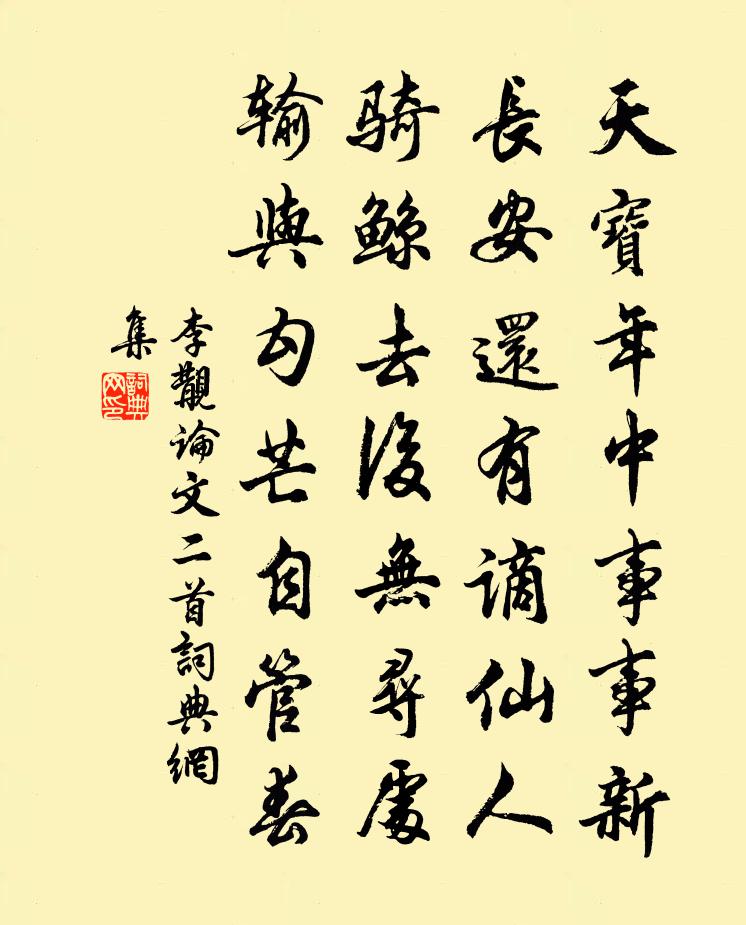 天寶年中事事新
長安還有謫仙人
騎鯨去後無尋處
输與勾芒自管春
李觏論文二首詞典網
集
詞典
网印